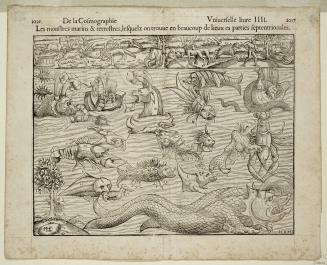 1020. De la Cosmographie Vniuerselle liure IIII. 1017
Les monstres marins & terrestres, lesquelz on trouue en beaucoup de lieux es parties septentrionales.